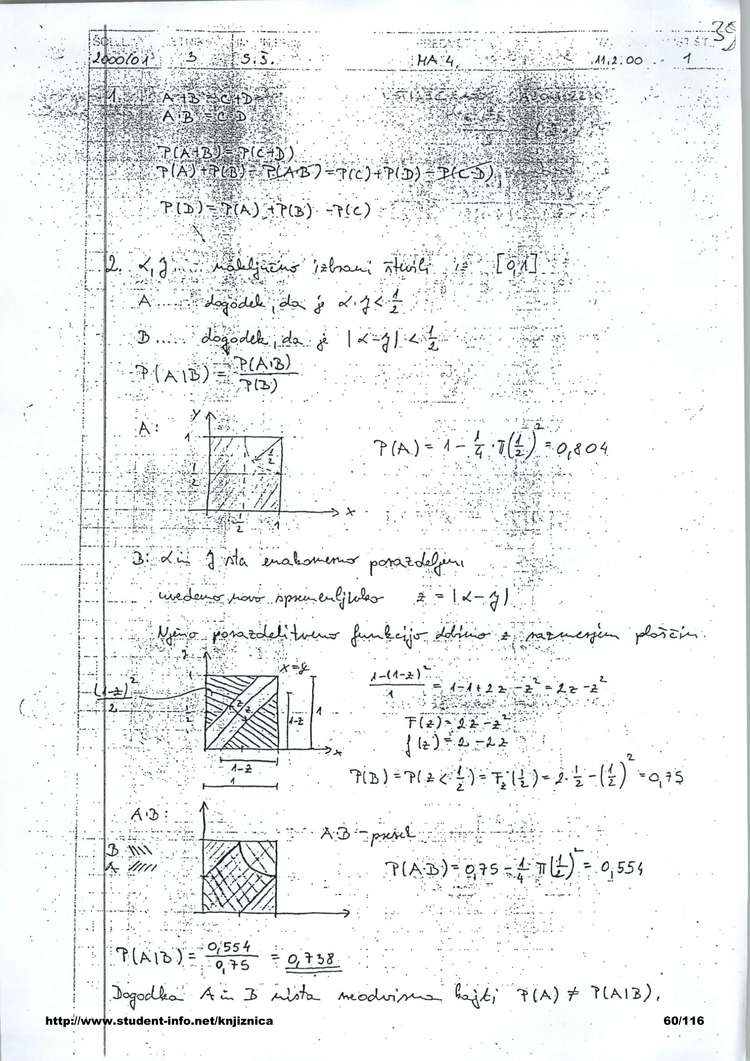 39
2000/01 3 S.Š. MA 4, 11.2.00 1
1. A+B = C+D
A·B = C·D
P(A+B) = P(C+D)
P(A)+P(B)-P(A·B) = P(C)+P(D)-P(C·D)
P(D) = P(A)+P(B)-P(C)
2. α, y .... naključno izbrani števili iz [0,1]
A ..... dogodek, da je α·y < 1/2
B ..... dogodek, da je |α-y| < 1/2
P(A|B) = P(A·B)/P(B)
A: y 1 1/2 1/2 1/2 1 x
P(A) = 1 - 1/4·π(1/2)² = 0,804
B: α in y sta enakomerno porazdeljeni
uvedemo novo spremenljivko z = |α-y|
Njeno porazdelitveno funkcijo dobimo z razmerjem ploščin.
(1-z)²/2 x=y z z 1-z 1 x
1-z
1
1-(1-z)²/1 = 1-1+2z-z² = 2z-z²
F(z) = 2z-z²
f(z) = 2-2z
P(B) = P(z < 1/2) = F_z(1/2) = 2·1/2-(1/2)² = 0,75
A·B:
A·B - presek
B
A
P(A·B) = 0,75 - 1/4 π(1/2)² = 0,554
P(A|B) = 0,554/0,75 = 0,738
Dogodka A in B nista neodvisna kajti P(A) ≠ P(A|B).
http://www.student-info.net/knjiznica 60/116